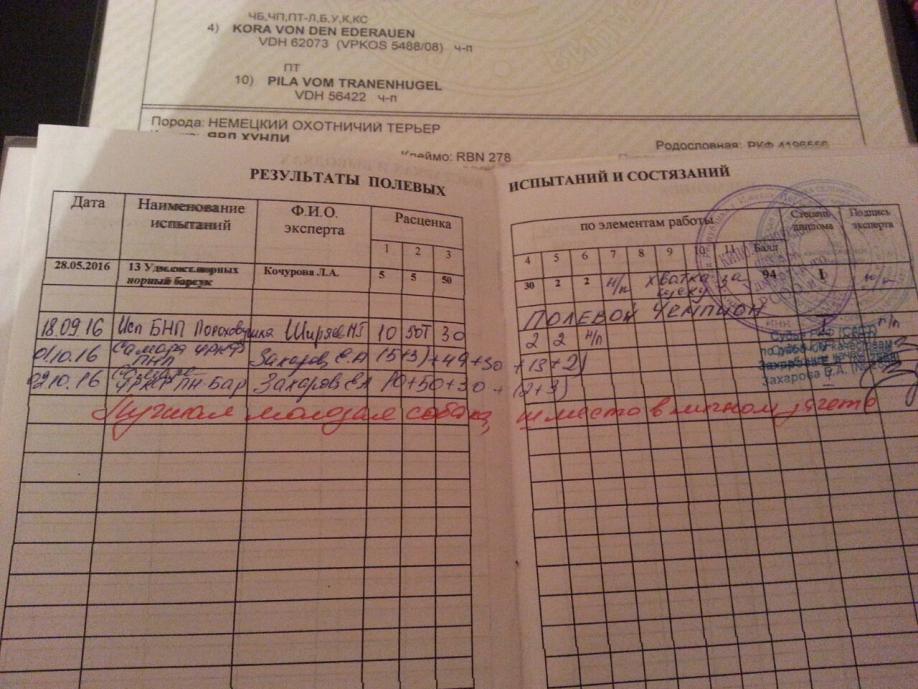 ЧБ,ЧП,ПТ-Л,Б,У,К,КС
4) KORA VON DEN EDERAUEN
VDH 62073 (VPKOS 5488/08) ч-п
ПТ
10) PILA VOM TRANENHUGEL
VDH 56422 ч-п
Порода: НЕМЕЦКИЙ ОХОТНИЧИЙ ТЕРЬЕР
Родословная: РКФ
Клеймо: RBN 278
РЕЗУЛЬТАТЫ ПОЛЕВЫХ ИСПЫТАНИЙ И СОСТЯЗАНИЙ
Дата Наименование испытаний Ф.И.О. эксперта Расценка по элементам работы Степень диплома Подпись эксперта
1 2 3 4 5 6 7 8 9 10 11 Балл
28.05.2016 13 Удм.сост.норных норный барсук Кочурова Л.А. 5 5 50 30 2 2 н/п хватка за щеку 94 I н/п
ПОЛЕВОЙ ЧЕМПИОН
18.09.16 Исп БНП Пороховушка Ширяев 10 50 30 2 2 н/п
01.10.16 Самара ЧРКФ Захаров Е.А 15+3)+49+30 +(3+2)
02.10.16 ЧРКФ ПН-Бар Захаров Е.А 10+50+30 + (2+3)
Лучшая молодая собака, III место в личном зачете
Захарова Е.А.